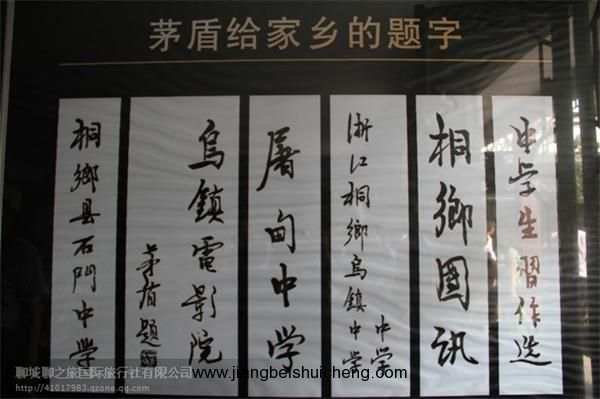 茅盾给家乡的题字
中学生習作选
桐鄉國讯
浙江桐鄉烏鎮中学
中学
屠甸中学
烏鎮電影院
茅盾题
桐鄉县石門中学
聊城聊之旅国际旅行社有限公司
http://41017983.qzone.qq.com
www.jiangbeishuicheng.com